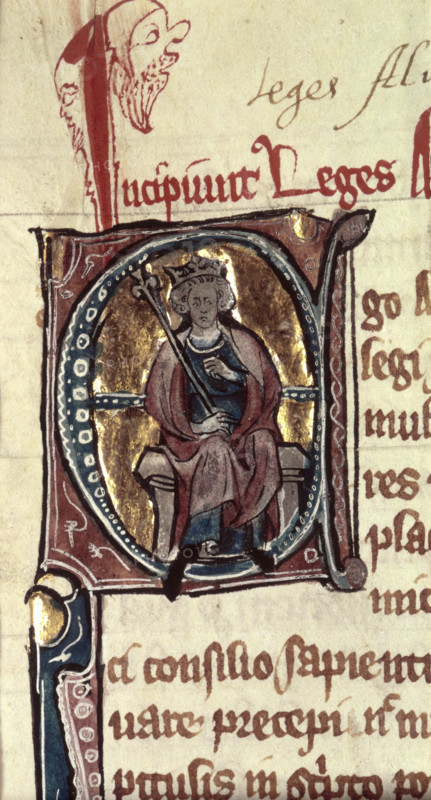 Leges Alu
Incipiunt Leges A
E
go A
legi
mult
res
plac
mic
ci consilio sapienti
uare precepi
pitulis in sc̄pto po